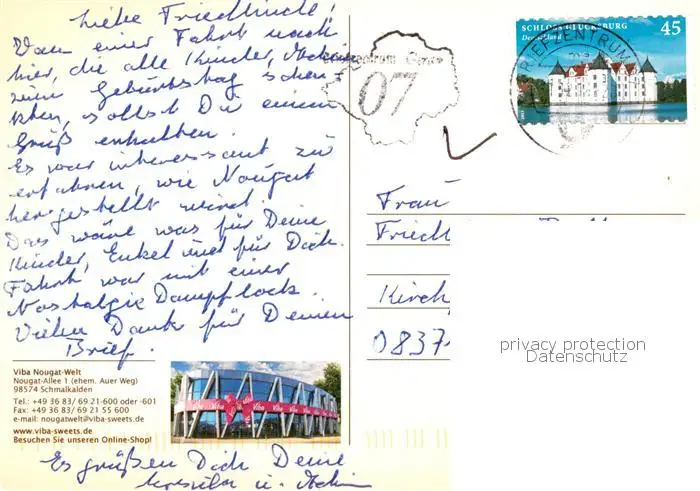 Liebe Friedlinde!
Von einer Fahrt nach
hier, die alle Kinder, Achim
zum Geburtstag schenk-
ten, sollst Du einen
Gruß erhalten.
Es war interessant zu
erfahren, wie Nougat
hergestellt wird.
Das wäre was für Deine
Kinder, Enkel und für Dich.
Fahrt war mit einer
Nostalgie Dampflock.
Vielen Dank für Deinen
Brief.
Viba Nougat-Welt
Nougat-Allee 1 (ehem. Auer Weg)
98574 Schmalkalden
Tel.: +49 36 83/ 69 21-600 oder -601
Fax: +49 36 83/ 69 21 55 600
e-mail: nougatwelt@viba-sweets.de
www.viba-sweets.de
Besuchen Sie unseren Online-Shop!
Viba
Es grüßen Dich Deine
u. Achim
SCHLOSS GLÜCKSBURG 45
Deutschland
BRIEFZENTRUM
07
Frau
Friedl
Kirch
0837
privacy protection
Datenschutz